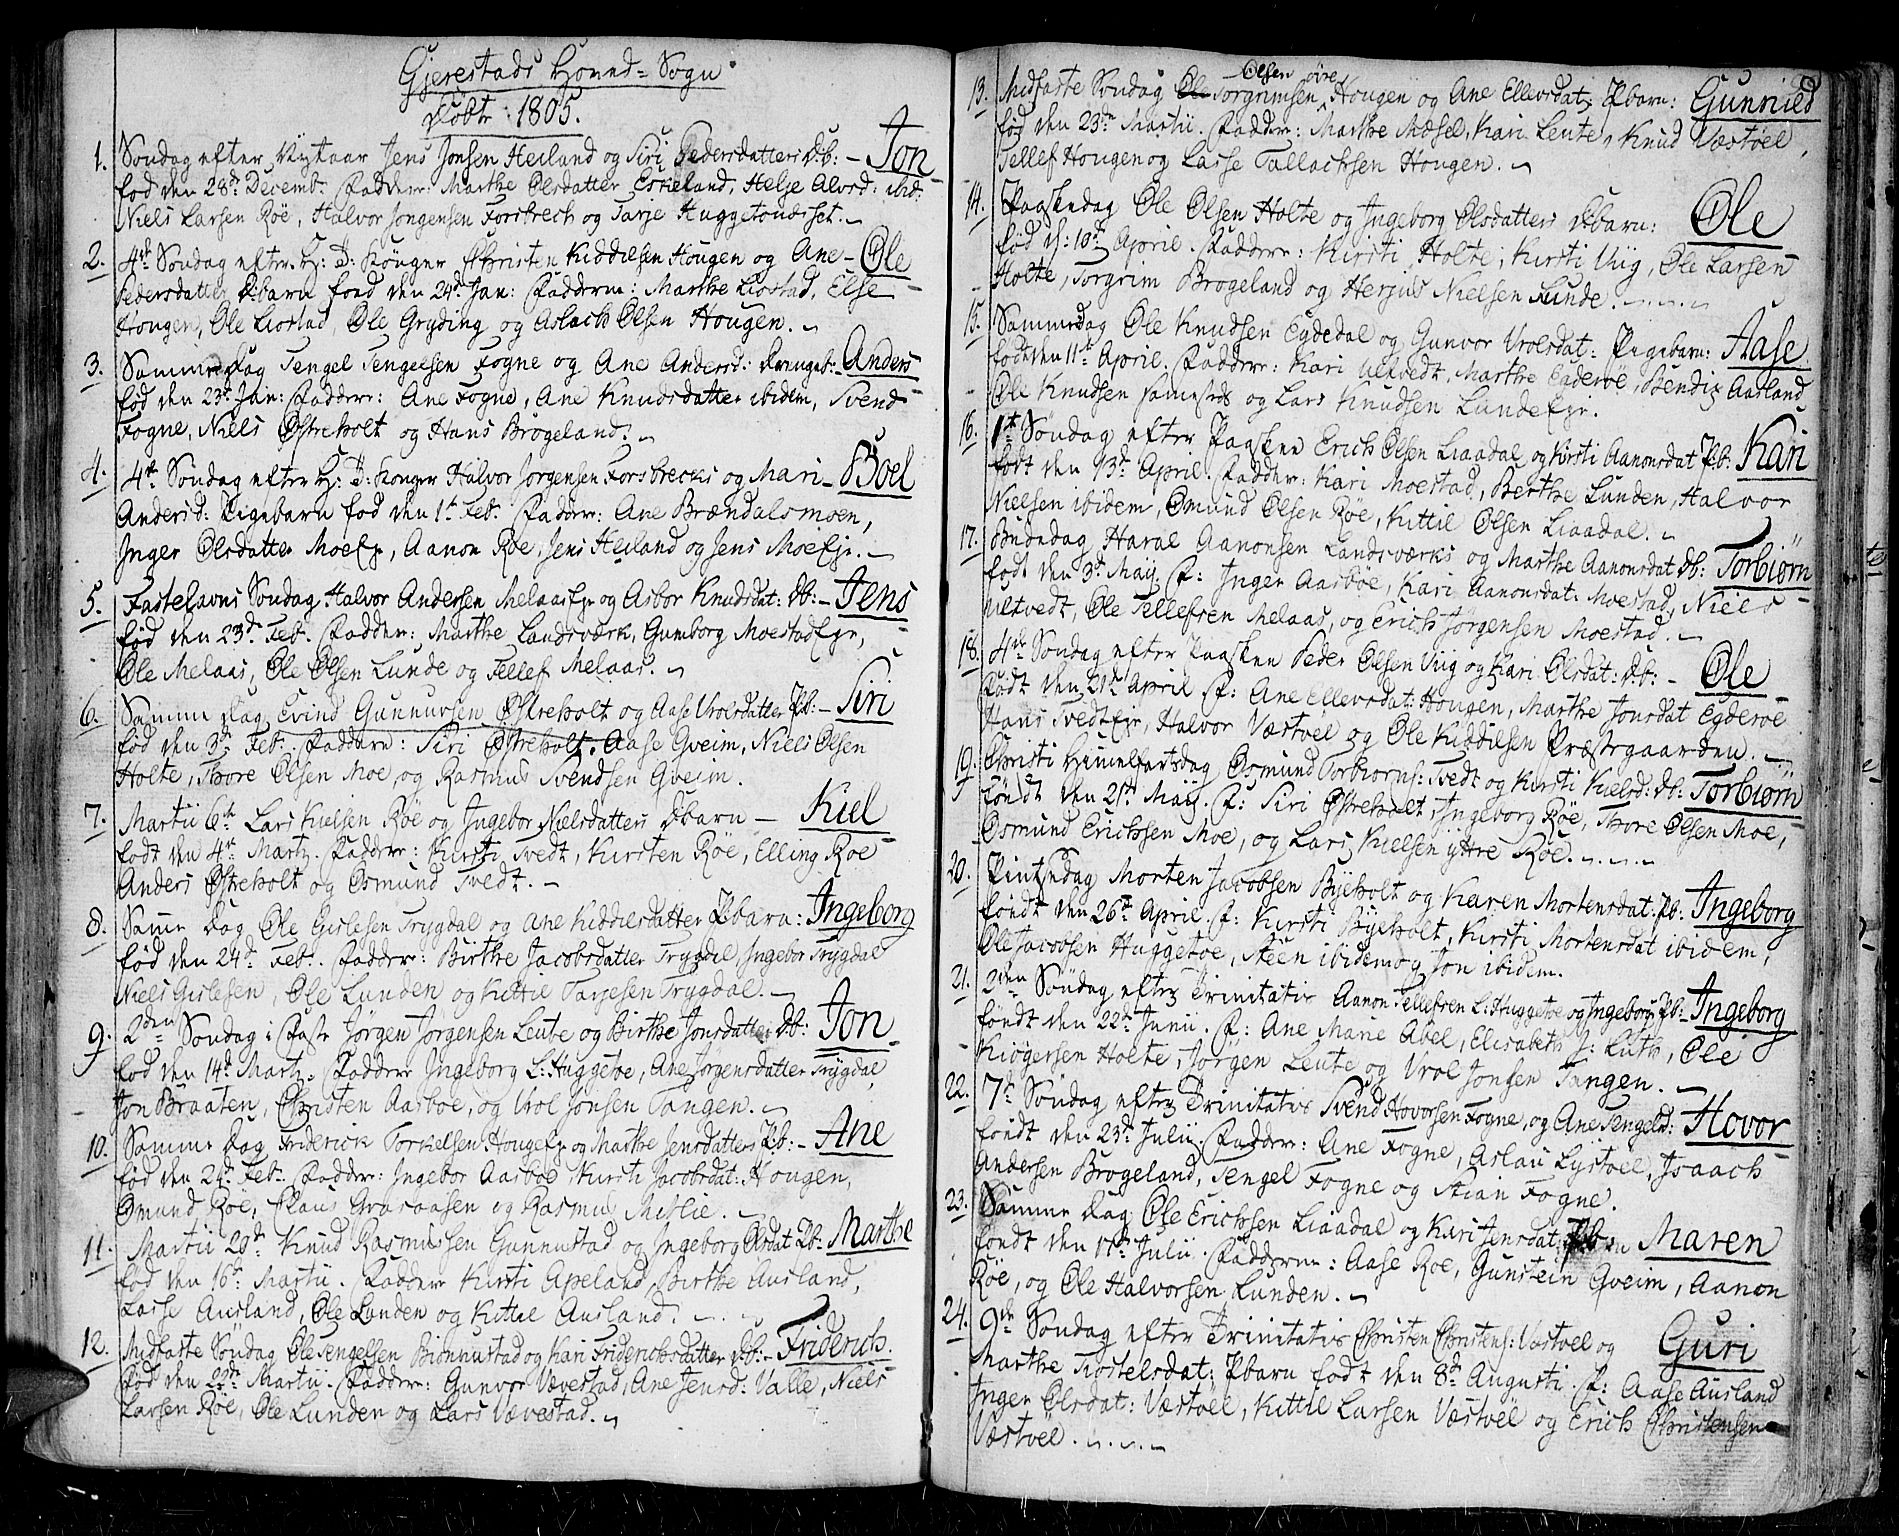 Gjerestads Hoved-Sogn
døbte 1805.
1. Søndag efter Nytaar Jens Jonsen Heiland og Siri Pedersdatters Db: – Jon
fød den 28de Decembr. Faddere: Marthe Olsdatter Eskeland, Helje Alvsd: ibid:
Niels Larsen Røe, Halvor Jørgensen Forsbech og Tarje Huggetondsset.
2. 4de Søndag efter H: 3: Konger Christen Kiddilsen Hougen og Ane – Ole
Pedersdatter Dbarn fød den 24de Jan: Fadderne: Marthe Liostad, Else
Hougen, Ole Liostad, Ole Gryding og Aslach Olsen Hougen.
3. Samme Dag Tengel Tengelsen Fogne og Ane Andersd: Drengeb: Anders
fød den 23de Jan: Faddere: Ane Fogne, Ane Knudsdatter ibidem, Svend
Fogne, Niels Østreholt og Hans Brøgeland.
4. 4de Søndag efter H: 3: Konger Halvor Jørgensen Forsbrecks og Mari – Boel
Andersd: Pigebarn fød den 1st Feb. Faddere: Ane Brændalsmoen,
Inger Olsdatter Moeejr, Aanon Røe, Jens Heiland og Jens Moeejr.
5. Fastelavns Søndag Halvor Andersen Melaasejr og Asbor Knudsdat: Db: – Jens
fød den 23de Feb. Faddere: Marthe Landsværk, Gunborg Moestadejr,
Ole Melaas, Ole Olsen Lunde og Tellef Melaas.
6. Samme Dag Evind Gunnursen Østreholt og Aase Vrolsdatter Pb: – Siri
fød den 3de Feb. Faddere: Siri Østreholt, Aase Gveim, Niels Olsen
Holte, Thore Olsen Moe og Rasmus Svendsen Gveim.
7. Martii 6te Lars Kielsen Røe og Ingebor Nielsdatters Dbarn – Kiel
født den 4de Martz. Faddere: Kirsti Tvedt, Kirsten Røe, Elling Røe
Anders Østreholt og Osmund Tvedt.
8. Samme Dag Ole Gislesen Trygdal og Ane Kiddilsdatter Pbarn: Ingeborg
fød den 24de Feb. Faddere: Birthe Jacobsdatter Trygdal, Ingebor Trygdal
Niels Gislesen, Ole Lunden og Kittil Tarjesen Trygdal.
9. 2den Søndag i Faste Jørgen Jørgensen Leute og Birthe Jonsdatter Db: Jon
fød den 14de Martz. Faddere Ingeborg L: Huggetve, Ane Jørgensdatter Trygdal,
Jon Braaten, Christen Aasbøe, og Vrol Jonsen Tangen.
10. Samme Dag Friderick Torkelsen Hougeejr og Marthe Jensdatters Pb: – Ane
fød den 24de Feb. Faddere: Ingebor Aasbøe, Kirsti Jacobsdat: Hougen,
Osmund Røe, Claus Graraasen og Rasmus Mitlie.
11. Martii 20de Knud Rasmussen Gunnustad og Ingeborg Orsdat Pb: Marthe
fød den 16de Martii. Faddere Kirsti Apeland, Birthe Ausland,
Lasse Ausland, Ole Lunden og Kittil Ausland.
12. Midfaste Søndag Ole Tengelsen Bionnustad og Kari Fridericksdatter Db: – Friderich.
fød den 22de Martii. Faddere: Gunvor Vævestad, Ane Jensd: Valle, Niels
Larsen Røe, Ole Lunden og Lars Vævestad.
13. Midfaste Søndag Ole Torgrimsen Olsen øvre Hougen og Ane Ellevsdat. Pbarn: Gunnild
fød den 23de Martii. Faddere: Marthe Mæsel, Kari Leute, Knud Væstøel,
Tellef Hougen og Lasse Tallachsen Hougen.
14. Paaskedag Ole Olsen Holte og Ingeborg Olsdatters Dbarn: Ole
fød d: 10de April. Faddere: Kirsti Holte, Kirsti Viig, Ole Larsen
Holte, Torgrim Brøgeland og Herjus Nielsen Lunde.
15. Samme Dag Ole Knudsen Egdedal og Gunvor Vrolsdat: Pigebarn: Aase
født den 11te April. Faddere: Kari Ultvedt, Marthe Egderøe, Bendix Aasland
Ole Knudsen sameste og Lars Knudsen Lundeejr.
16. 1st Søndag efter Paaske Erich Olsen Liaadal og Kirsti Aanonsdat Pb: Kari
født den 13de April. Faddere: Kari Moestad, Berthe Lunden, Halvor
Nielsen ibidem, Osmund Olsen Røe, Kittil Olsen Liaadal.
17. Bededag Haral Aanonsen Landsværks og Marthe Aanonsdat Db: Torbiørn
født den 3de Maij. F: Inger Aasbøe, Kari Aanonsdat: Moestad, Niels
Ultvedt, Ole Tellefsen Melaas, og Erich Jørgensen Moestad.
18. 4de Søndag efter Paaske Peder Olsen Viig og Kari Olsdat: Db: – Ole
Født den 21de April F: Ane Ellevsdat: Hougen, Marthe Jonsdat Egderøe
Hans Tvedtejr, Halvor Væstøel og Ole Kiddilsen Præstegaarden.
19. Christi Himmelfartsdag Osmund Torbiorns: Tvedt og Kirsti Kielsd: Db: Torbiørn
føndt den 21de Maij. F: Siri Østreholt, Ingeborg Røe, Thore Olsen Moe,
Osmund Erichsen Moe, og Lars Kielsen yttre Røe.
20. Pintsedag Morten Jacobsen Byeholt og Karen Mortensdat. Pb: Ingeborg
føndt den 26de April. F: Kirsti Byeholt, Kirsti Mortensdat ibidem,
Ole Jacobsen Huggetve, Steen ibidem og Jon ibidem.
21. 2den Søndag efter Trinitatis Aanon Tellefsen L: Huggetve og Ingeborg Pb: – Ingeborg
føndt den 22de Junii. F: Ane Marie Abel, Elisabeth J: Luth, Ole
Kiøgersen Holte, Jørgen Leute og Vrol Jonsen Tangen.
22. 7de Søndag efter Trinitatis Svend Hovorsen Fogne, og Ane Tengeld: Hovor
føndt den 23de Julii. Faddere: Ane Fogne, Aslau Lystøel, Isaach
Andersen Brøgeland, Tengel Fogne og Stian Fogne.
23. Samme Dag Ole Erichsen Liaadal og Kari Jensdat: Pb: Maren
føndt den 17de Julii. Fadderne: Aase Røe, Gunstein Gveim, Aanon
Røe, og Ole Halvorsen Lunden.
24. 9de Søndag efter Trinitatis Christen Christens: Væstøel og Guri
Marthe Kiostelsdat: Pbarn født den 8de Augusti. F: Aase Ausland
Inger Olsdat: Væstøel, Kittil Larsen Væstøel og Erich Christensen
Væstøel.